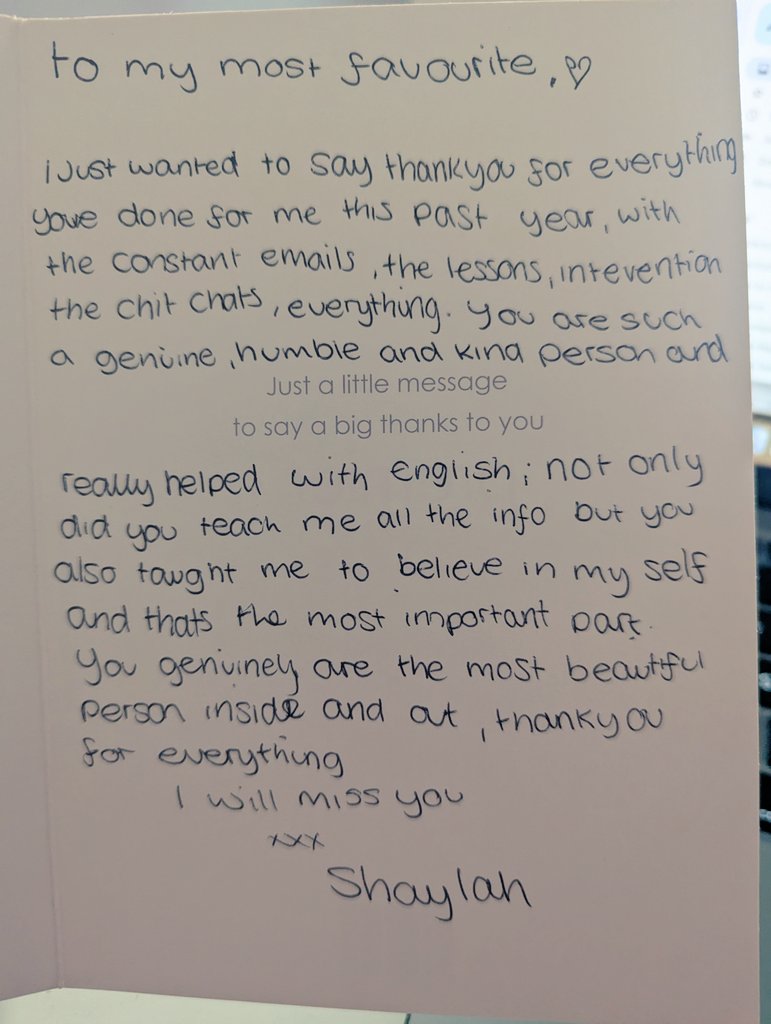 to my most favourite, ♡
i just wanted to say thankyou for everything
youve done for me this past year, with
the constant emails, the lessons, intevention
the chit chats, everything. you are such
a genuine, humble and kind person and
Just a little message
to say a big thanks to you
really helped with english; not only
did you teach me all the info but you
also taught me to believe in my self
and thats the most important part.
you genuinely are the most beautful
person inside and out, thankyou
for everything
I will miss you
xxx
Shaylah